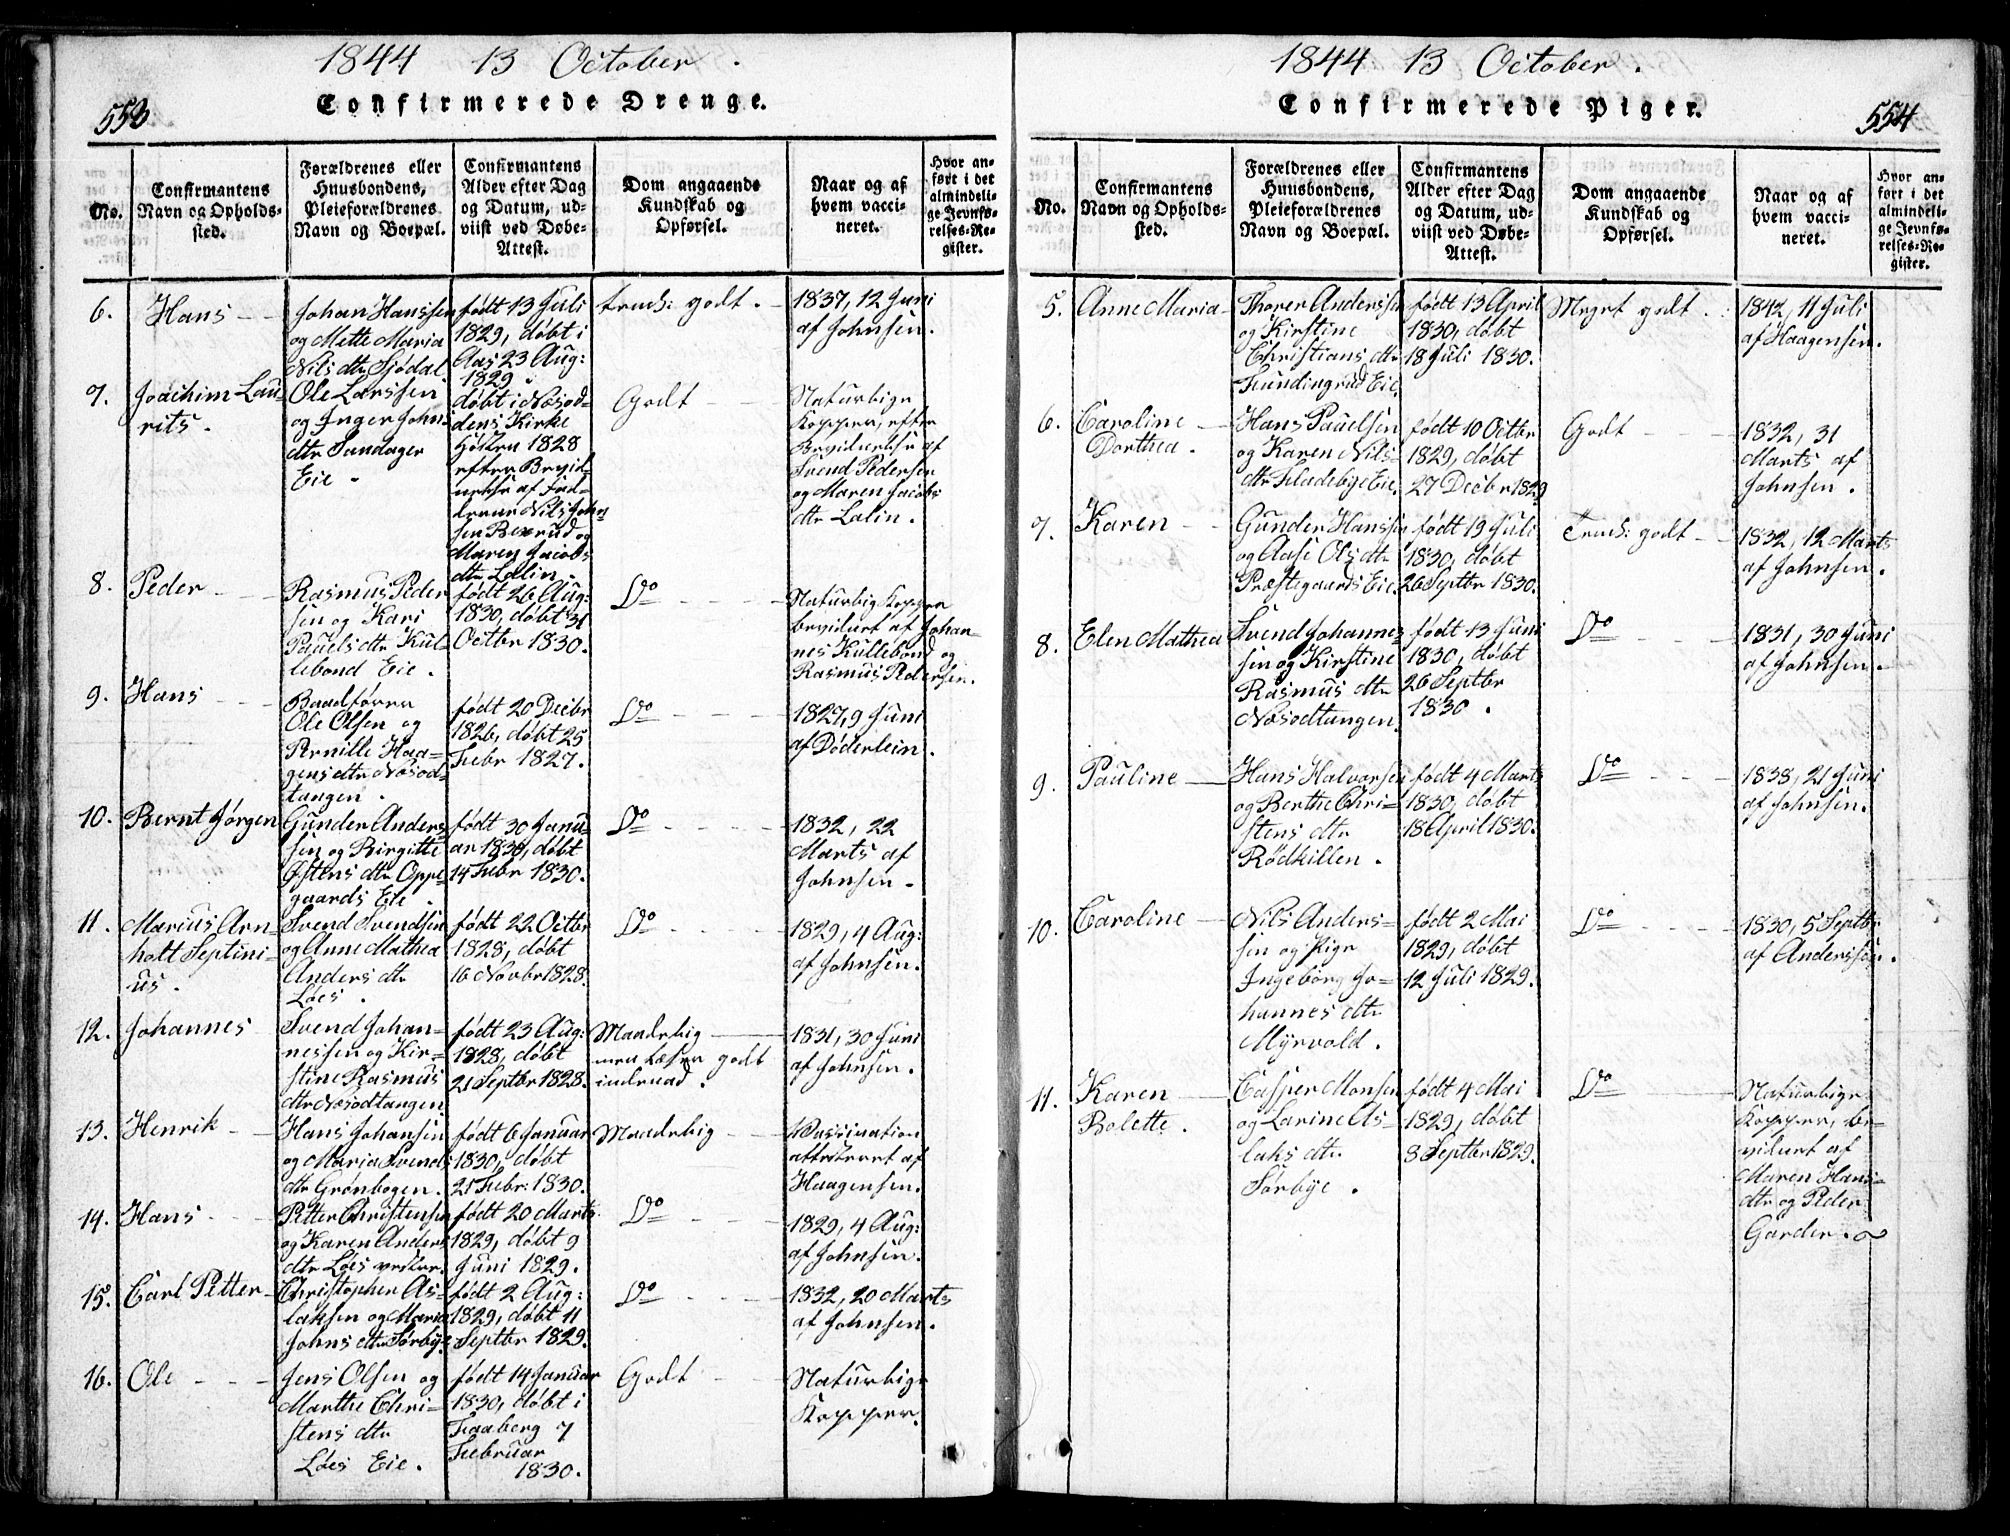 1844 13 October.
Confirmerede Drenge.
553
No.
Confirmantens
Navn og Opholds-
sted.
Forældrenes eller
Huusbondens,
Pleieforældrenes
Navn og Boepæl.
Confirmantens
Alder efter Dag
og Datum, ud-
viist ved Døbe-
Attest.
Dom angaaende
Kundskab og
Opførsel.
Naar og af
hvem vacci-
neret.
Hvor an-
ført i det
almindeli-
ge Jevnfø-
relses-Re-
gister.
6.
Hans
Johan Hanssen
og Mette Maria
Nils dtr Sjødal
født 13 Juli
1829, døbt i
Aas 23 Aug:
1829.
godt.
1837, 12 Juni
af Johnsen.
7.
Joachim Lau-
rits.
Ole Larssen
og Inger Johns
dtr Sundager
Eie.
døbt i Næsod-
dens Kirke
Høsten 1828
efter Bevid-
nelse af Fad-
derne Nils John
sen Bexrud og
Maren Jacobs
dtr Lalin.
Godt
Naturlige
Kopper, efter
Bevidnelse af
Svend Pedersen
og Maren Jacobs
dtr Lalin.
8.
Peder
Rasmus Peder
sen og Kari
Pauels dtr Kul-
lebond Eie.
født 26 Aug:
1830, døbt 31
Octbr 1830.
Do
Naturlig Kopper
bevidnet af Johan-
nes Kullebond og
Rasmus Pedersen.
9.
Hans
Baadfører
Ole Olsen og
Pernille Haa-
gens dtr Næsod-
tangen.
født 20 Decbr
1826, døbt 25
Febr 1827.
Do
1827, 9 Juni
af Døderlein.
10.
Bernt Jørgen
Gunder Anders
sen og Birgitte
Østens dtr Oppe-
gaards Eie.
født 30 Janu-
ar 1830, døbt
14 Febr 1830.
Do
1832, 22
Marts af
Johnsen.
11.
Marius Arn
holt Septini-
us.
Svend Svendsen
og Anne Mathea
Anders dtr
Løes.
født 22 Octbr
1828, døbt
16 Novbr 1828.
Do
1829, 4 Aug:
af Johnsen.
12.
Johannes
Svend Johan-
nessen og Kir-
stine Rasmus
dtr Næsodtangen
født 23 Aug:
1828, døbt
21 Septbr 1828.
Maadelig
men læser godt
indenad.
1831, 30 Juni
af Johnsen.
13.
Henrik
Hans Johansen
og Maria Svends
dtr Grønbogen.
født 6 Januar
1830, døbt
21 Febr: 1830.
Maadelig
Vassination
attesteret af
Haagensen.
14.
Hans
Petter Christensen
og Karen Anders
dtr Løes vestre.
født 20 Marts
1829, døbt 9
Juni 1829.
Do
1829, 4 Aug:
af Johnsen.
15.
Carl Petter
Christopher As-
laksen og Maria
Johns dtr Sørbye
født 2 Aug:
1829, døbt 11
Septbr 1829.
Do
1832, 20 Marts
af Johnsen.
16.
Ole
Jens Olsen og
Marthe Chri-
stens dtr
Løes Eie.
født 14 Januar
1830, døbt i
Faaberg 7
Februar
1830.
Godt
Naturlige
Kopper.
1844 13 October.
Confirmerede Piger.
554
No.
Confirmantens
Navn og Opholds-
sted.
Forældrenes eller
Huusbondens,
Pleieforældrenes
Navn og Boepæl.
Confirmantens
Alder efter Dag
og Datum, ud-
viist ved Døbe-
Attest.
Dom angaaende
Kundskab og
Opførsel.
Naar og af
hvem vacci-
neret.
Hvor an-
ført i det
almindeli-
ge Jevnfø-
relses-Re-
gister.
5.
Anne Maria
Thorer Anderssen
og Kirstine
Christians dtr
Eie.
født 13 April
1830, døbt
18 Juli 1830.
Meget godt.
1842, 11 Juli
af Haagensen.
6.
Caroline
Dorthea.
Hans Pauelsen
og Karen Nils-
dtr Fladebye Eie.
født 10 Octbr
1829, døbt
27 Decbr 1829
Godt
1832, 31
Marts af
Johnsen.
7.
Karen
Gunder Hanssen
og Aase Ols dtr
Præstegaards Eie
født 19 Juli
1830, døbt
26 Septbr 1830.
godt
1832, 12 Marts
af Johnsen.
8.
Elen Mathea
Svend Johannes-
sen og Kirstine
Rasmus dtr
Næsodtangen
født 13 Juni
1830, døbt
26 Septbr
1830.
Do
1831, 30 Juni
af Johnsen.
9.
Pauline
Hans Halvorsen
og Berthe Chri-
stens dtr
Rødkillen.
født 4 Marts
1830, døbt
18 April 1830.
Do
1838, 21 Juni
af Johnsen.
10.
Caroline
Nils Anders-
sen og Pige
Ingeborg Jo-
hannes dtr
Myrvold.
født 2 Mai
1829, døbt
12 Juli 1829.
Do
1830, 5 Septbr
af Anderssen.
11.
Karen
Bolette.
Casper Monsen
og Larine As-
laks dtr
Sørbye.
født 4 Mai
1829, døbt
8 Septbr 1829.
Do
Naturlige
Kopper, be-
vidnet af
Maren Hans-
dtr og Peder
Garder.